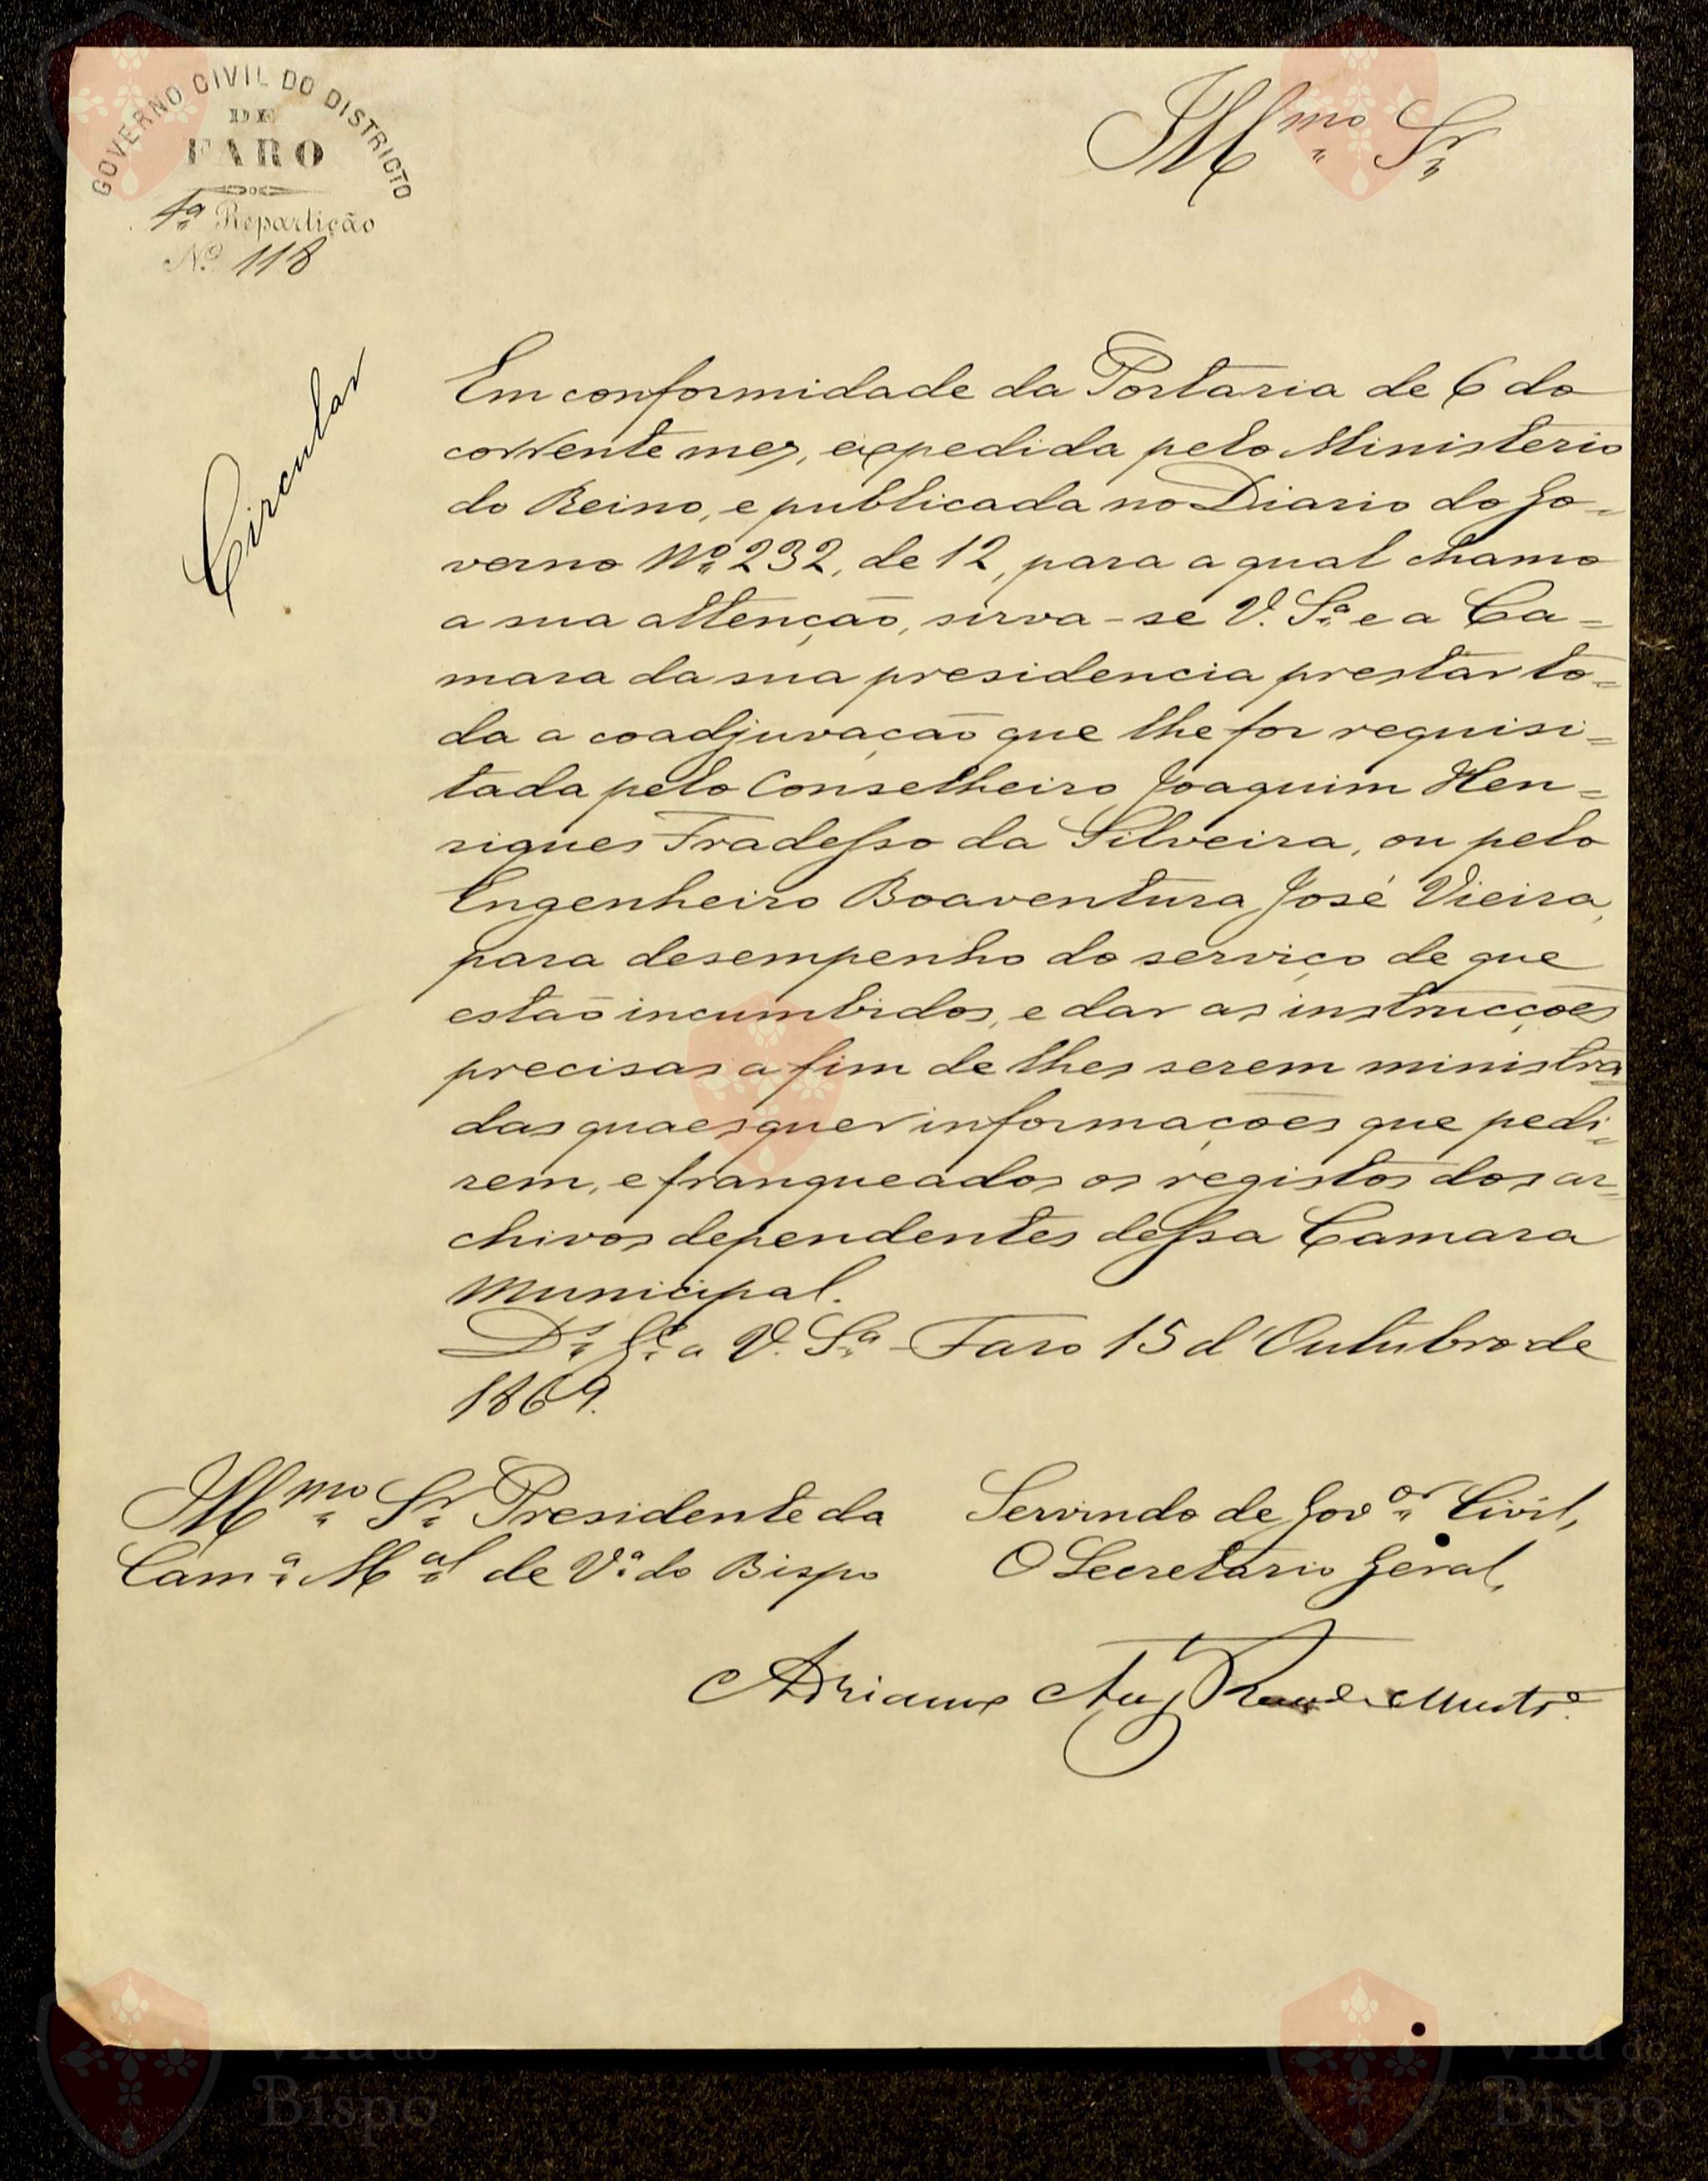 GOVERNO CIVIL DO DISTRICTO
DE
FARO
1ª Repartição
Nº 118
Illmo Sr
Circular
Em conformidade da Portaria de 6 do
corrente mez, expedida pelo Ministerio
do Reino, e publicada no Diario do Go=
verno Nº 232, de 12, para a qual chamo
a sua attenção, sirva-se V. Sª e a Ca=
mara da sua presidencia prestar to=
da a coadjuvação que lhe for requisi=
tada pelo Conselheiro Joaquim Hen=
riques Fradesso da Silveira, ou pelo
Engenheiro Boaventura José Vieira,
para desempenho do serviço de que
estão incumbidos, e dar as instrucções
precisas a fim de lhes serem ministra=
das quaesquer informações que pedi=
rem, e franqueados os registos dos ar=
chivos dependentes dessa Camara
Municipal.
Ds Ge a V. Sª - Faro 15 d'Outubro de
1869.
Illmo Sr Presidente da
Camª Mal de Vª do Bispo
Servindo de Govor Civil,
O Secretario Geral,
Adriano Aug
Vila do
Bispo
Vila do
Bispo